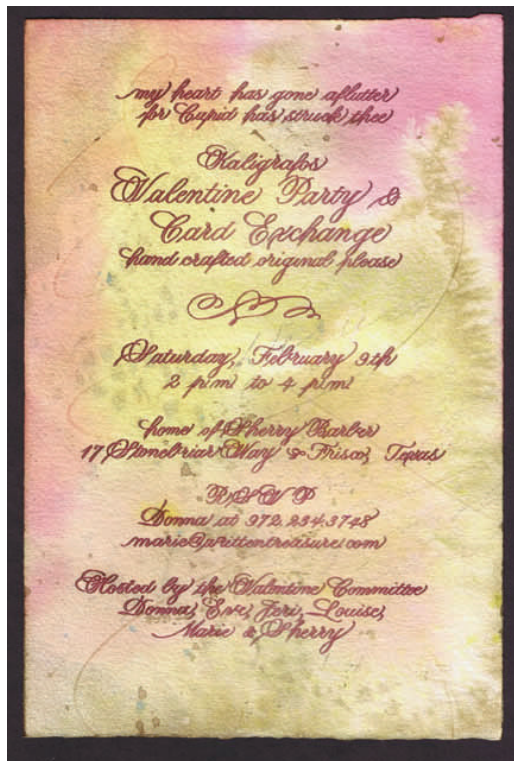 my heart has gone aflutter
for Cupid has struck thee
Kaligrafos
Valentine Party &
Card Exchange
hand crafted original please
Saturday, February 9th
2 p.m. to 4 p.m.
home of Sherry Barber
17 Stonebriar Way Frisco, Texas
R S V P
Donna at 972.234.3748
marie@writtentreasure.com
Hosted by the Valentine Committee
Donna, Eve, Jeri, Louise,
Marie & Sherry